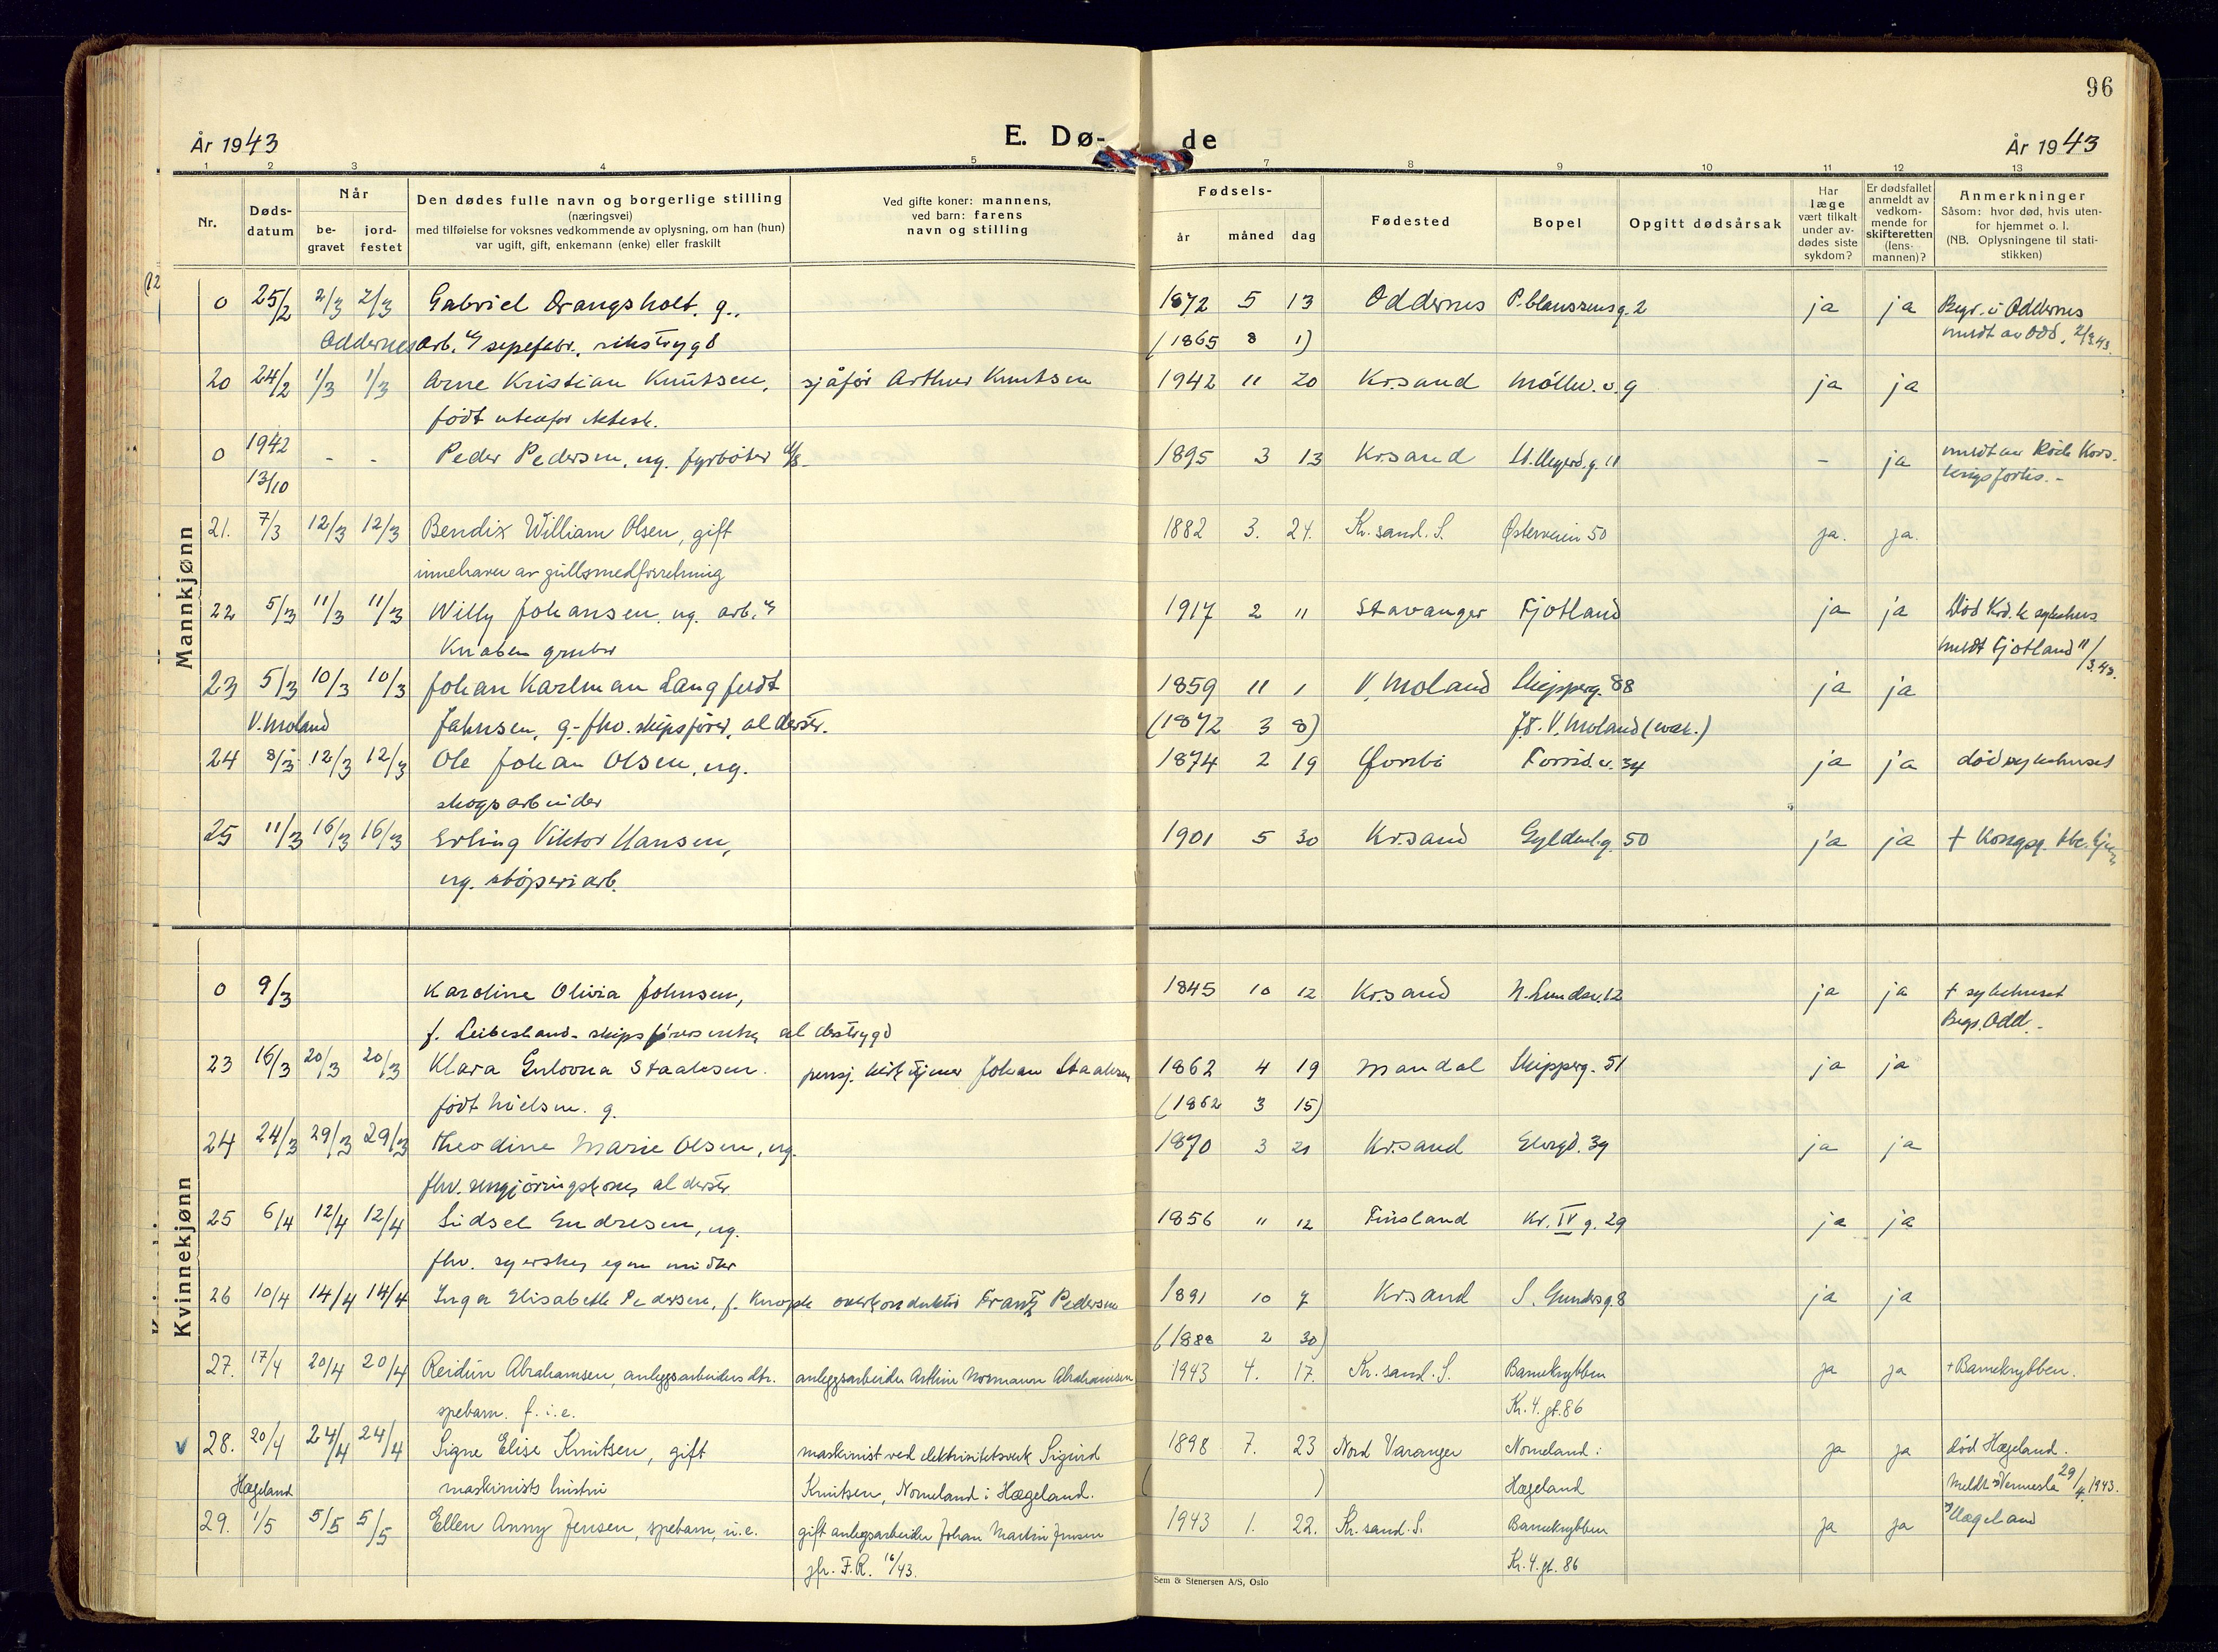 96
År 1943
E. Dø- de
År 1943
1 2 3 4 5 7 8 9 10 11 12 13
Nr.
Døds-
datum
Når
be-
gravet
jord-
festet
Den dødes fulle navn og borgerlige stilling
(næringsvei)
med tilføielse for voksnes vedkommende av oplysning, om han (hun)
var ugift, gift, enkemann (enke) eller fraskilt
Ved gifte koner: mannens,
ved barn: farens
navn og stilling
Fødsels-
år måned dag
Fødested
Bopel
Opgitt dødsårsak
Har
læge
vært tilkalt
under av-
dødes siste
sykdom?
Er dødsfallet
anmeldt av
vedkom-
mende for
skifteretten
(lens-
mannen)?
Anmerkninger
Såsom: hvor død, hvis uten-
for hjemmet o. l.
(NB. Oplysningene til stati-
stikken)
Mannkjønn
0 25/2 2/3 2/3 Gabriel Drangsholt. g., 1872 5 13 Oddernes P. Claussensg. 2 ja ja Begr. i Oddernes
Oddernes arb. v/ sepefabr., rikstrygd (1865 8 1) meldt av Odd. 2/3 43.
20 24/2 1/3 1/3 Arne Kristian Knutsen, sjåfør Arthur Knutsen 1942 11 20 Kr.sand Møllev. v. 9 ja ja
født utenfor ektesk.
0 1942 - - Peder Pedersen, ug. fyrbøter 1895 3 13 Kr.sand g. 11 - ja meldt av Røde Kors.
13/10 krigsforlis. -
21. 7/3 12/3 12/3 Bendix William Olsen, gift 1882 3. 24. Kr.sand. S. Østerveien 50 ja. ja.
innehaver av gullsmedforretning
22 5/3 11/3 11/3 Willy Johansen, ug. arb. v/ 1917 2 11 Stavanger Fjotland ja ja Død Krs.d. k sykehus
Knaben gruber meldt Fjotland 11/3.43.
23 5/3 10/3 10/3 Johan Karlman Langfeldt 1859 11 1 V. Moland Skipperg. 88 ja ja
V. Moland Jahnsen, g. fhv. skipsfører, alderstr. (1872 3 8) V. Moland (evak.)
24 8/3 12/3 12/3 Ole Johan Olsen, ug. 1874 2 19 34 ja ja død sykehuset
skogsarbeider
25 11/3 16/3 16/3 Erling Viktor Hansen, 1901 5 30 Kr.sand Gyldenl.g. 50 ja ja † Kongsg. tbc. hjem
ug. støperiarb.
Kvinnekjønn
0 9/3 Karoline Olivia Johnsen, 1845 10 12 Kr.sand N. Lundsv. 12 ja ja † sykehuset
f. Leibesland - skipsførersenke, alderstrygd Begr. Odd. -
23 16/3 20/3 20/3 Klara Gulovna Staalesen. pensj. kirketjener Johan Staalesen 1862 4 19 Mandal Skipperg. 51 ja ja
født Nielsen. g. (1862 3 15)
24 24/3 29/3 29/3 Theodine Marie Olsen, ug. 1870 3 21 Kr.sand Elvegd. 39 ja ja
fhv. rengjøringskone, alderstr.
25 6/4 12/4 12/4 Sidsel Endresen, ug. 1856 11 12 Finsland Kr. IV g. 29 ja ja
fhv. syerske, egne midler
26 10/4 14/4 14/4 Inga Elisabeth Pedersen, f. overkonduktør Frantz Pedersen 1891 10 7 Kr.sand S. 8 ja ja
(1888 2 30)
27. 17/4 20/4 20/4 Reidun Abrahamsen, anleggsarbeiders dtr. anleggsarbeider Arthur Normann Abrahamsen 1943 4. 17. Kr.sand. S. Barnekrybben ja ja † Barnekrybben.
spebarn. f. i. e. Kr. 4. gt. 86
28. 20/4 24/4 24/4 Signe Elise Knutsen, gift maskinist ved elektrisitetsverk Sigurd 1898 7. 23 Nord Varanger Nomeland i ja ja død Hægeland.
Hægeland maskinists hustru Knutsen, Nomeland i Hægeland. ( ) Hægeland Meldt Vennesla 29/4 1943.
29. 1/5 5/5 5/5 Ellen Anny Jensen, spebarn, u. e. gift anleggsarbeider Johan Martin Jensen 1943 1. 22. Kr.sand. S. Barnekrybben ja ja Hægeland
jfr. F.R. 16/43. Kr. 4. gt. 86
Sem & Stenersen A/S, Oslo